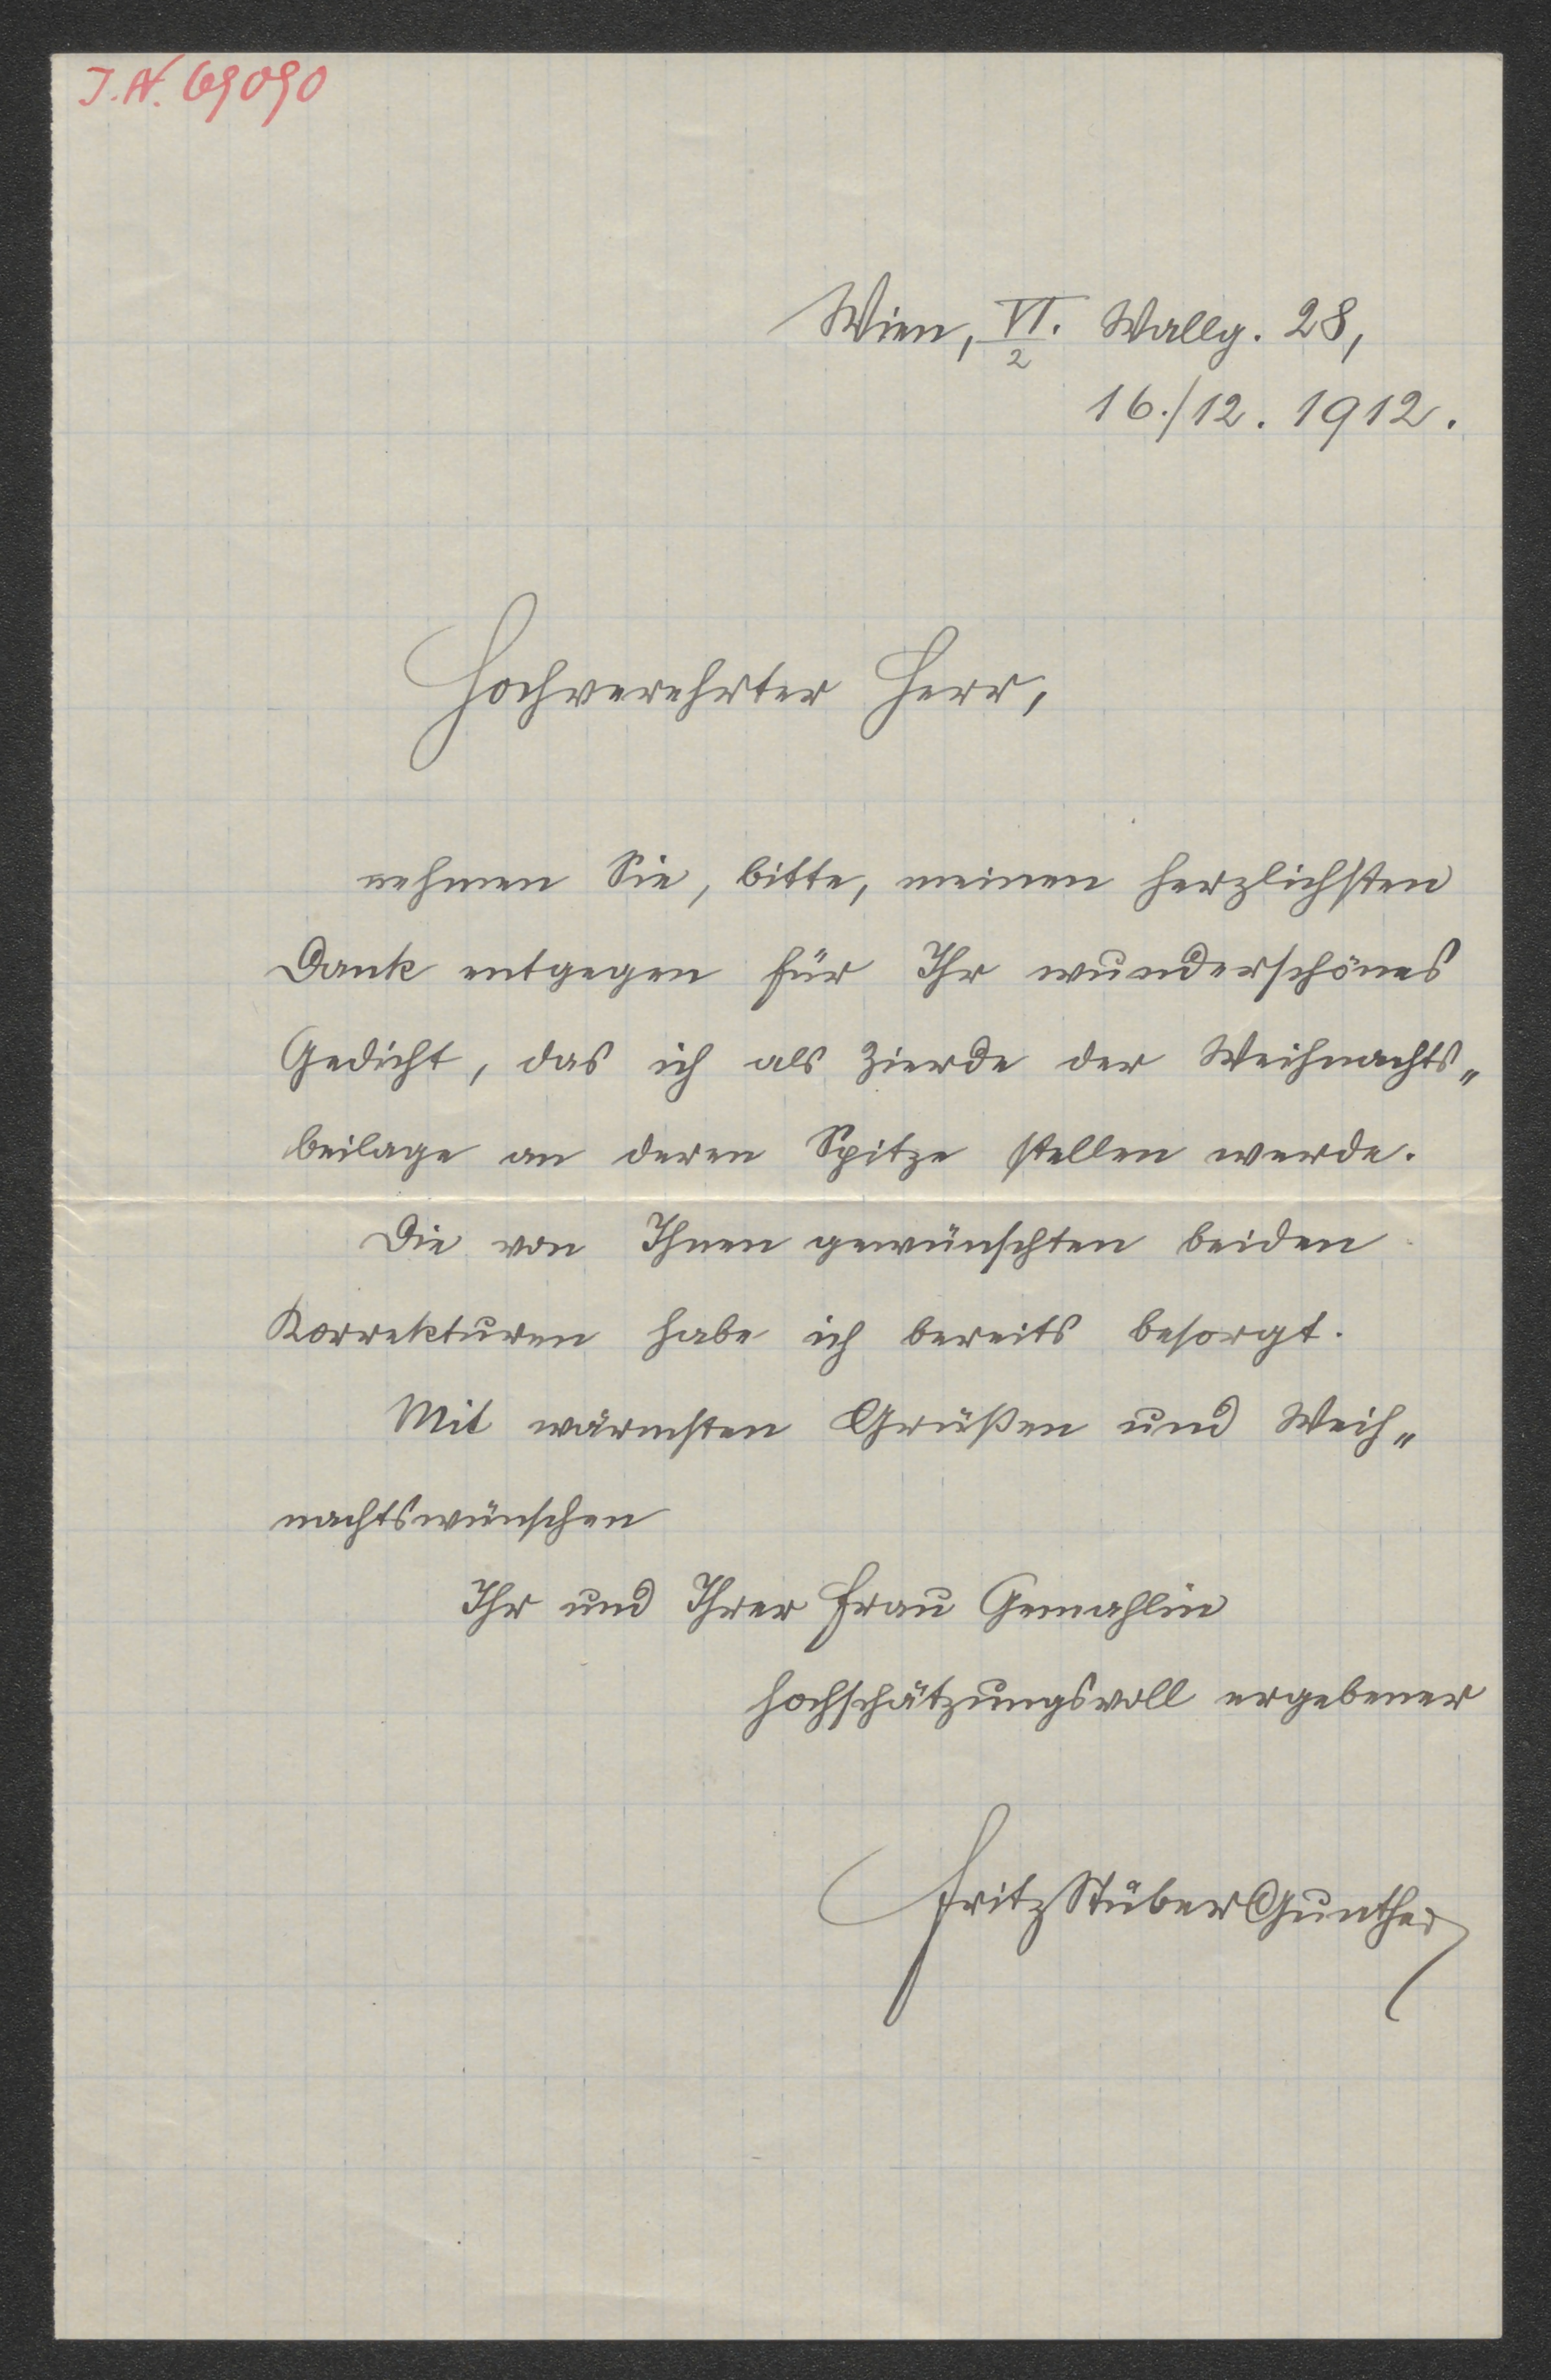 J.N. 69090
Wien, VI./2 Wallg. 28,
16./12. 1912.
Hochverehrter Herr,
nehmen Sie, bitte, meinen herzlichsten
Dank entgegen für Ihr wunderschönes
Gedicht, das ich als Zierde der Weihnachts„
beilage an deren Spitze stellen werde.
Die von Ihnen gewünschten beiden
Korrekturen habe ich bereits besorgt.
Mit wärmsten Grüßen und Weih„
nachtswünschen
Ihr und Ihrer Frau Gemahlin
hochschätzungsvoll ergebener
Fritz Stüber Gunther